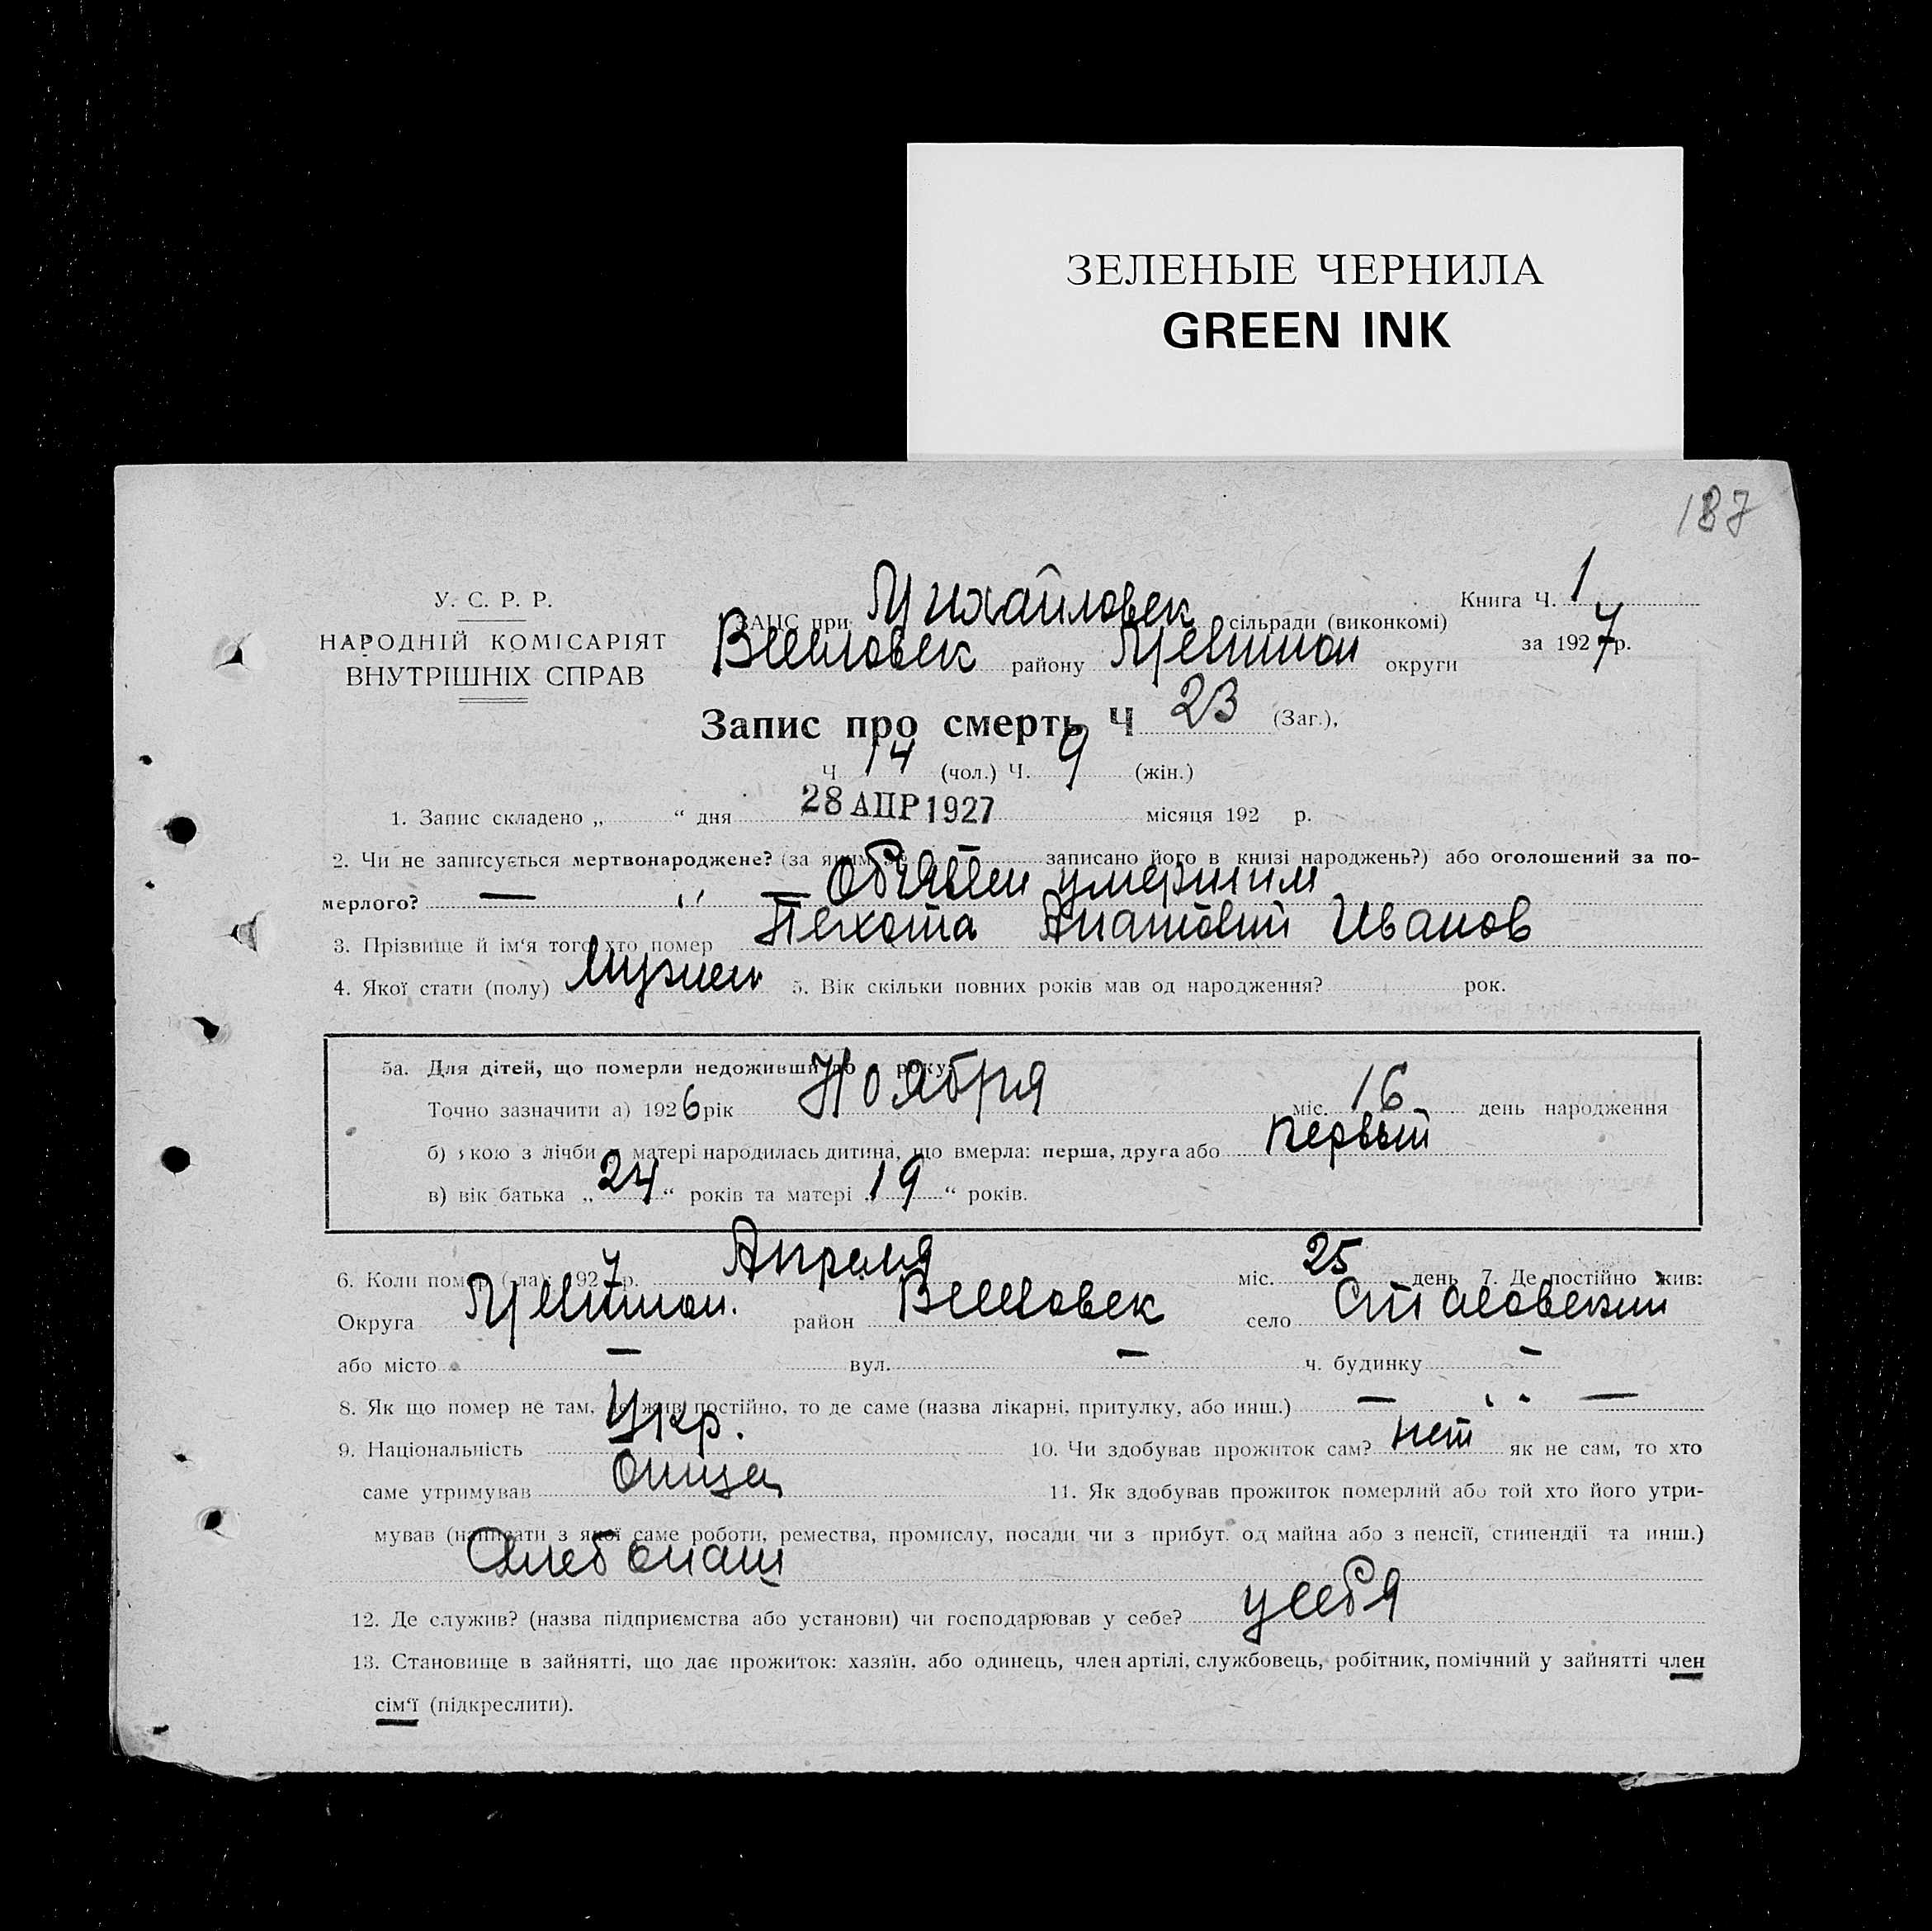 ЗЕЛЕНЫЕ ЧЕРНИЛА
GREEN INK
187
У. С. Р. Р.
НАРОДНІЙ КОМІСАРІЯТ
ВНУТРІШНІХ СПРАВ
ЗАПС при Михайловск сільради (виконкомі)
району округи
Книга Ч. 1
за 1927 р.
Запис про смерть Ч 23 (Заг.),
Ч 14 (чол.) Ч. 9 (жін.)
1. Запис складено „ “ дня 28 АПР 1927 місяця 192 р.
2. Чи не записується мертвонароджене? (за яким записано його в книзі народжень?) або оголошений за по-
мерлого? — „ — умершим
3. Прізвище й ім‘я того хто помер Пехота Анатолий Иванов
4. Якої стати (полу) Мужск 5. Вік скільки повних років мав од народження? рок.
5а. Для дітей, що померли недоживши до року
Точно зазначити а) 1926 рік Ноября міс. 16 день народження
б) якою з лічби у матері народилась дитина, що вмерла: перша, друга або первый
в) вік батька „24“ років та матері „19“ років.
6. Коли помер (-ла): 1927 р. Апреля міс. 25 день 7. Де постійно жив:
Округа район село
або місто — вул. — ч. будинку —
8. Як що помер не там, де жив постійно, то де саме (назва лікарні, притулку, або инш.) — „ —
9. Національність Укр. 10. Чи здобував прожиток сам? нет як не сам, то хто
саме утримував отца 11. Як здобував прожиток померлий або той хто його утри-
мував (написати з якої саме роботи, ремества, промислу, посади чи з прибут. од майна або з пенсії, стипендії та инш.)
Хлебопаш
12. Де служив? (назва підприємства або установи) чи господарював у себе? у себя
13. Становище в зайнятті, що дає прожиток: хазяїн, або одинець, член артілі, службовець, робітник, помічний у зайнятті член
сім‘ї (підкреслити).